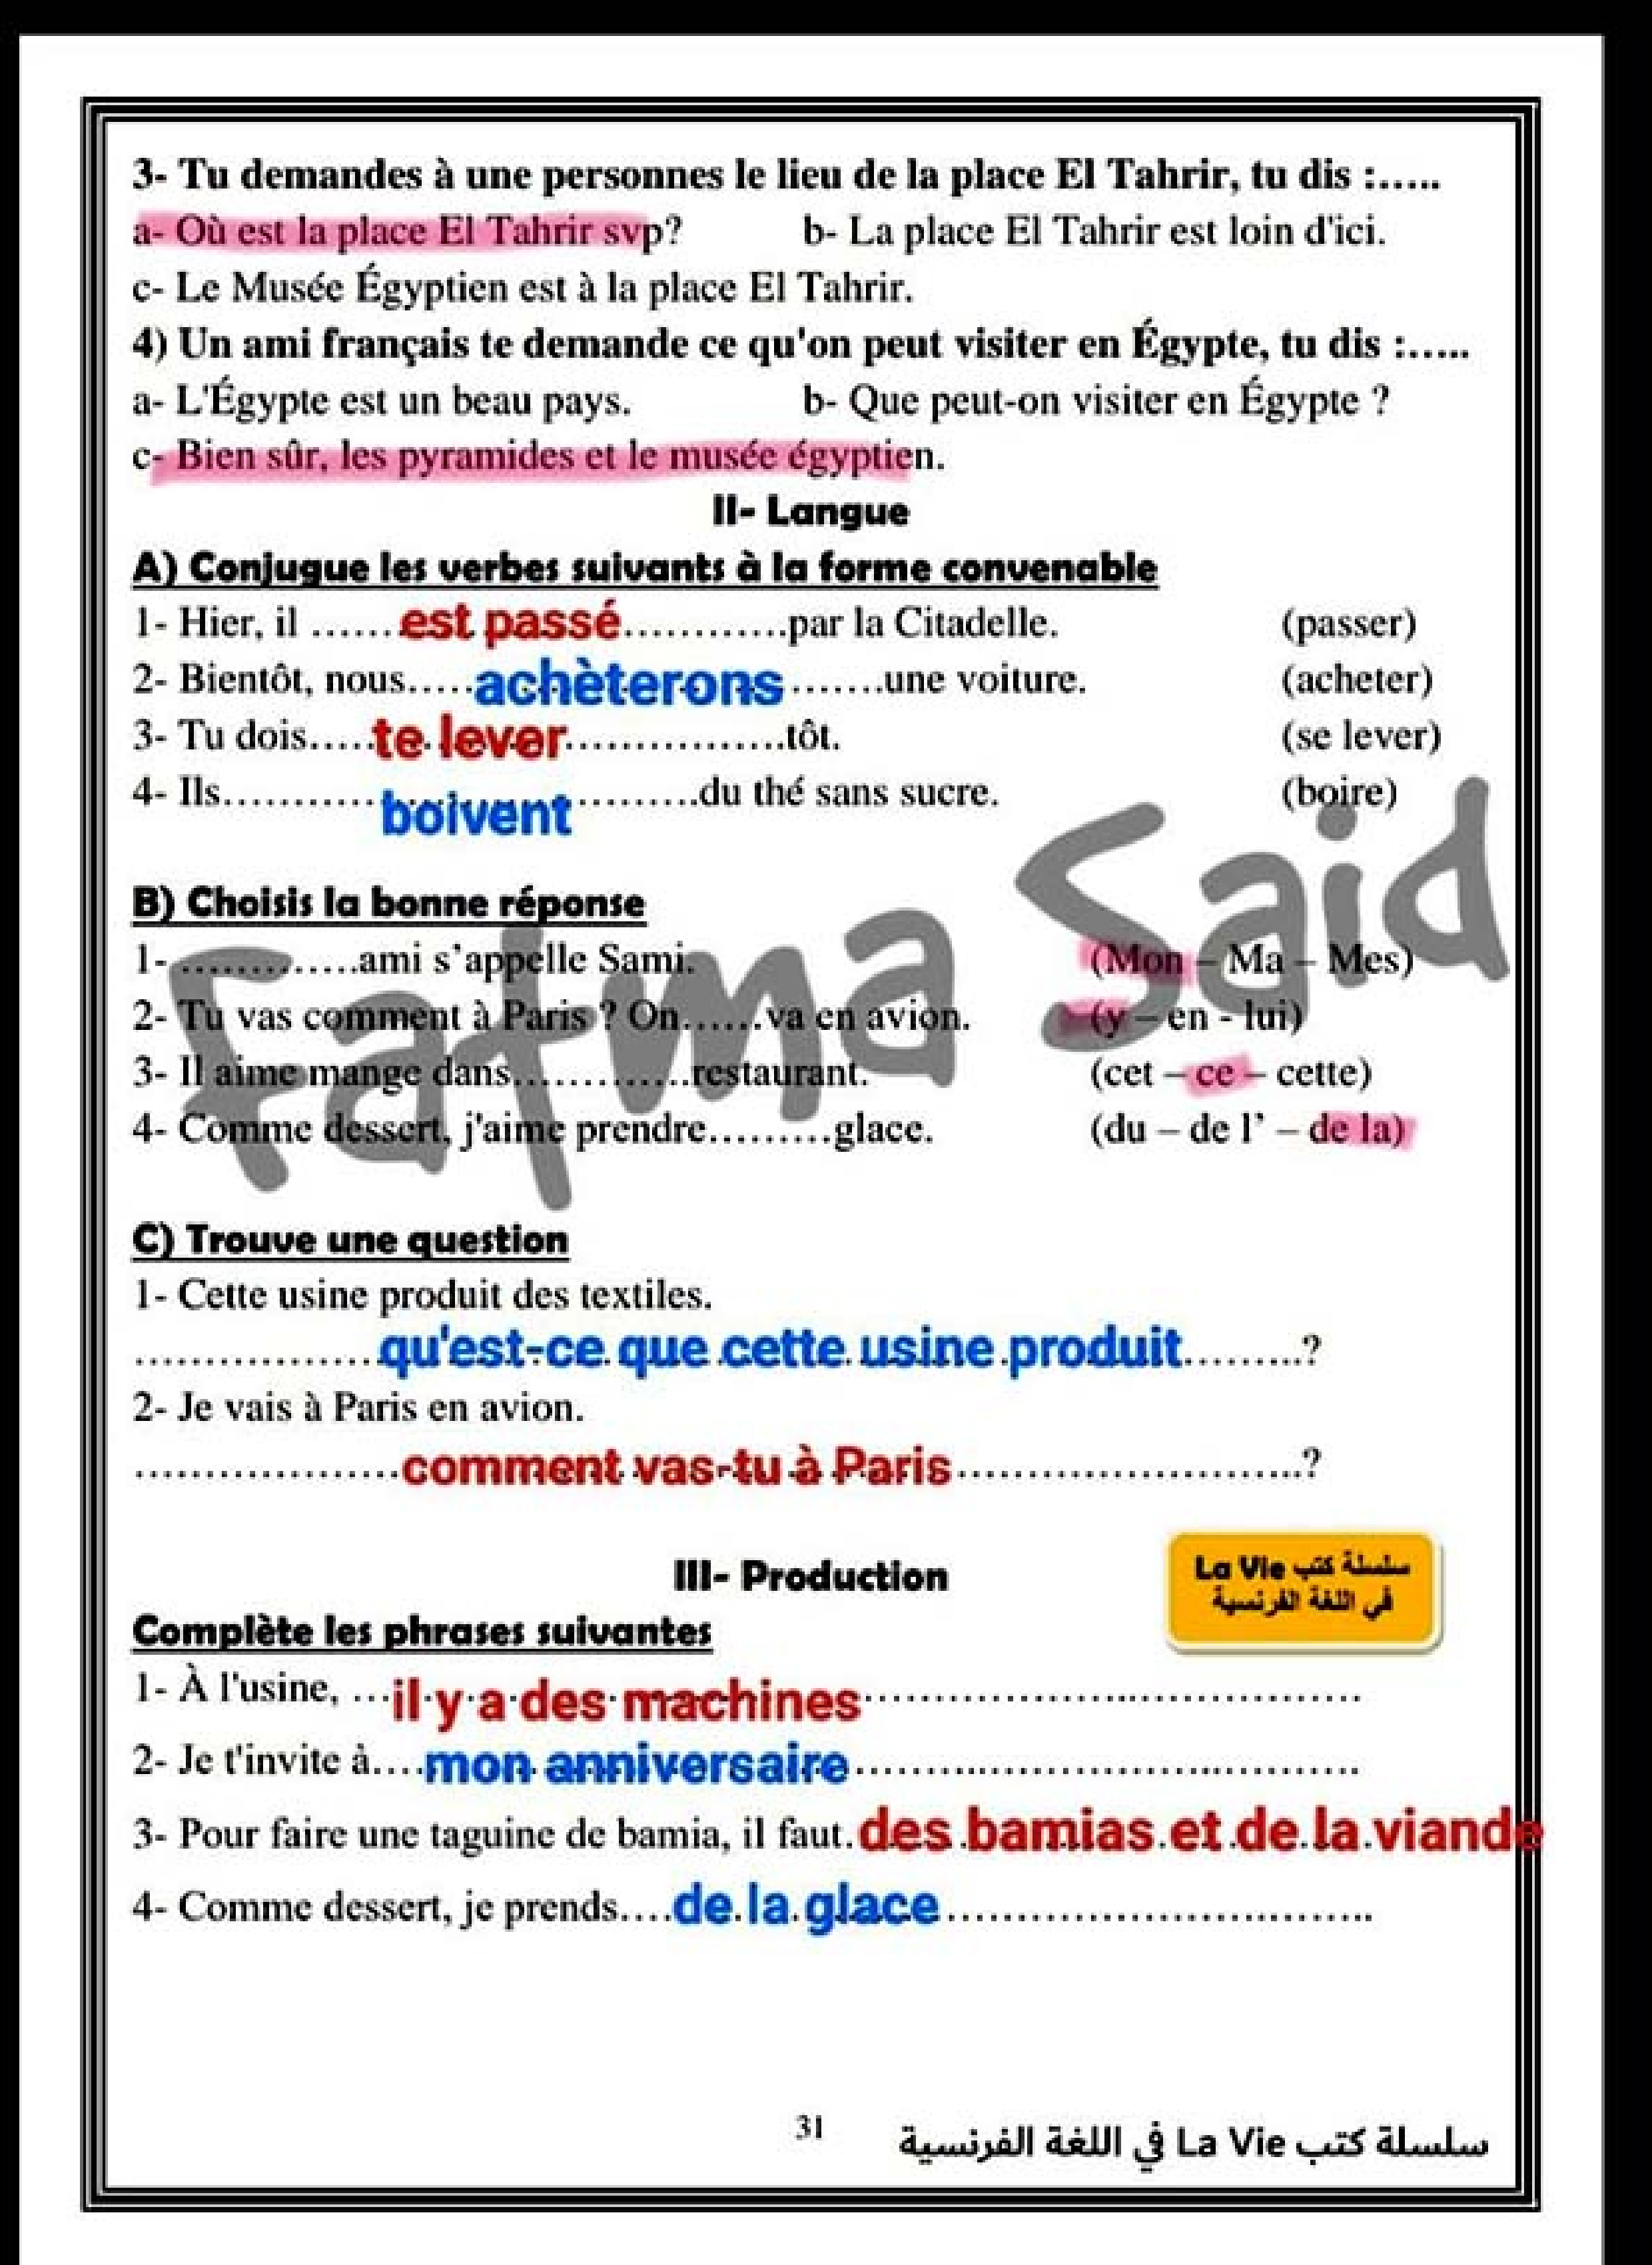 3- Tu demandes à une personnes le lieu de la place El Tahrir, tu dis :.....
a- Où est la place El Tahrir svp? b- La place El Tahrir est loin d'ici.
c- Le Musée Égyptien est à la place El Tahrir.
4) Un ami français te demande ce qu'on peut visiter en Égypte, tu dis :.....
a- L'Égypte est un beau pays. b- Que peut-on visiter en Égypte ?
c- Bien sûr, les pyramides et le musée égyptien.
II- Langue
A) Conjugue les verbes suivants à la forme convenable
1- Hier, il ......est passé............par la Citadelle. (passer)
2- Bientôt, nous.....achèterons.......une voiture. (acheter)
3- Tu dois.....te lever................tôt. (se lever)
4- Ils...........boivent.........du thé sans sucre. (boire)
B) Choisis la bonne réponse
1- .............ami s’appelle Sami. (Mon – Ma – Mes)
2- Tu vas comment à Paris ? On......va en avion. (y – en - lui)
3- Il aime mange dans.............restaurant. (cet – ce – cette)
4- Comme dessert, j'aime prendre.........glace. (du – de l’ – de la)
Fatma Said
C) Trouve une question
1- Cette usine produit des textiles.
..................qu'est-ce que cette usine produit.........?
2- Je vais à Paris en avion.
...................comment vas-tu à Paris.........................?
III- Production
سلسلة كتب La Vie
في اللغة الفرنسية
Complète les phrases suivantes
1- À l'usine, ...il y a des machines....................................
2- Je t'invite à....mon anniversaire....................................
3- Pour faire une taguine de bamia, il faut.des bamias et de la viande
4- Comme dessert, je prends....de la glace...............................
31
سلسلة كتب La Vie في اللغة الفرنسية